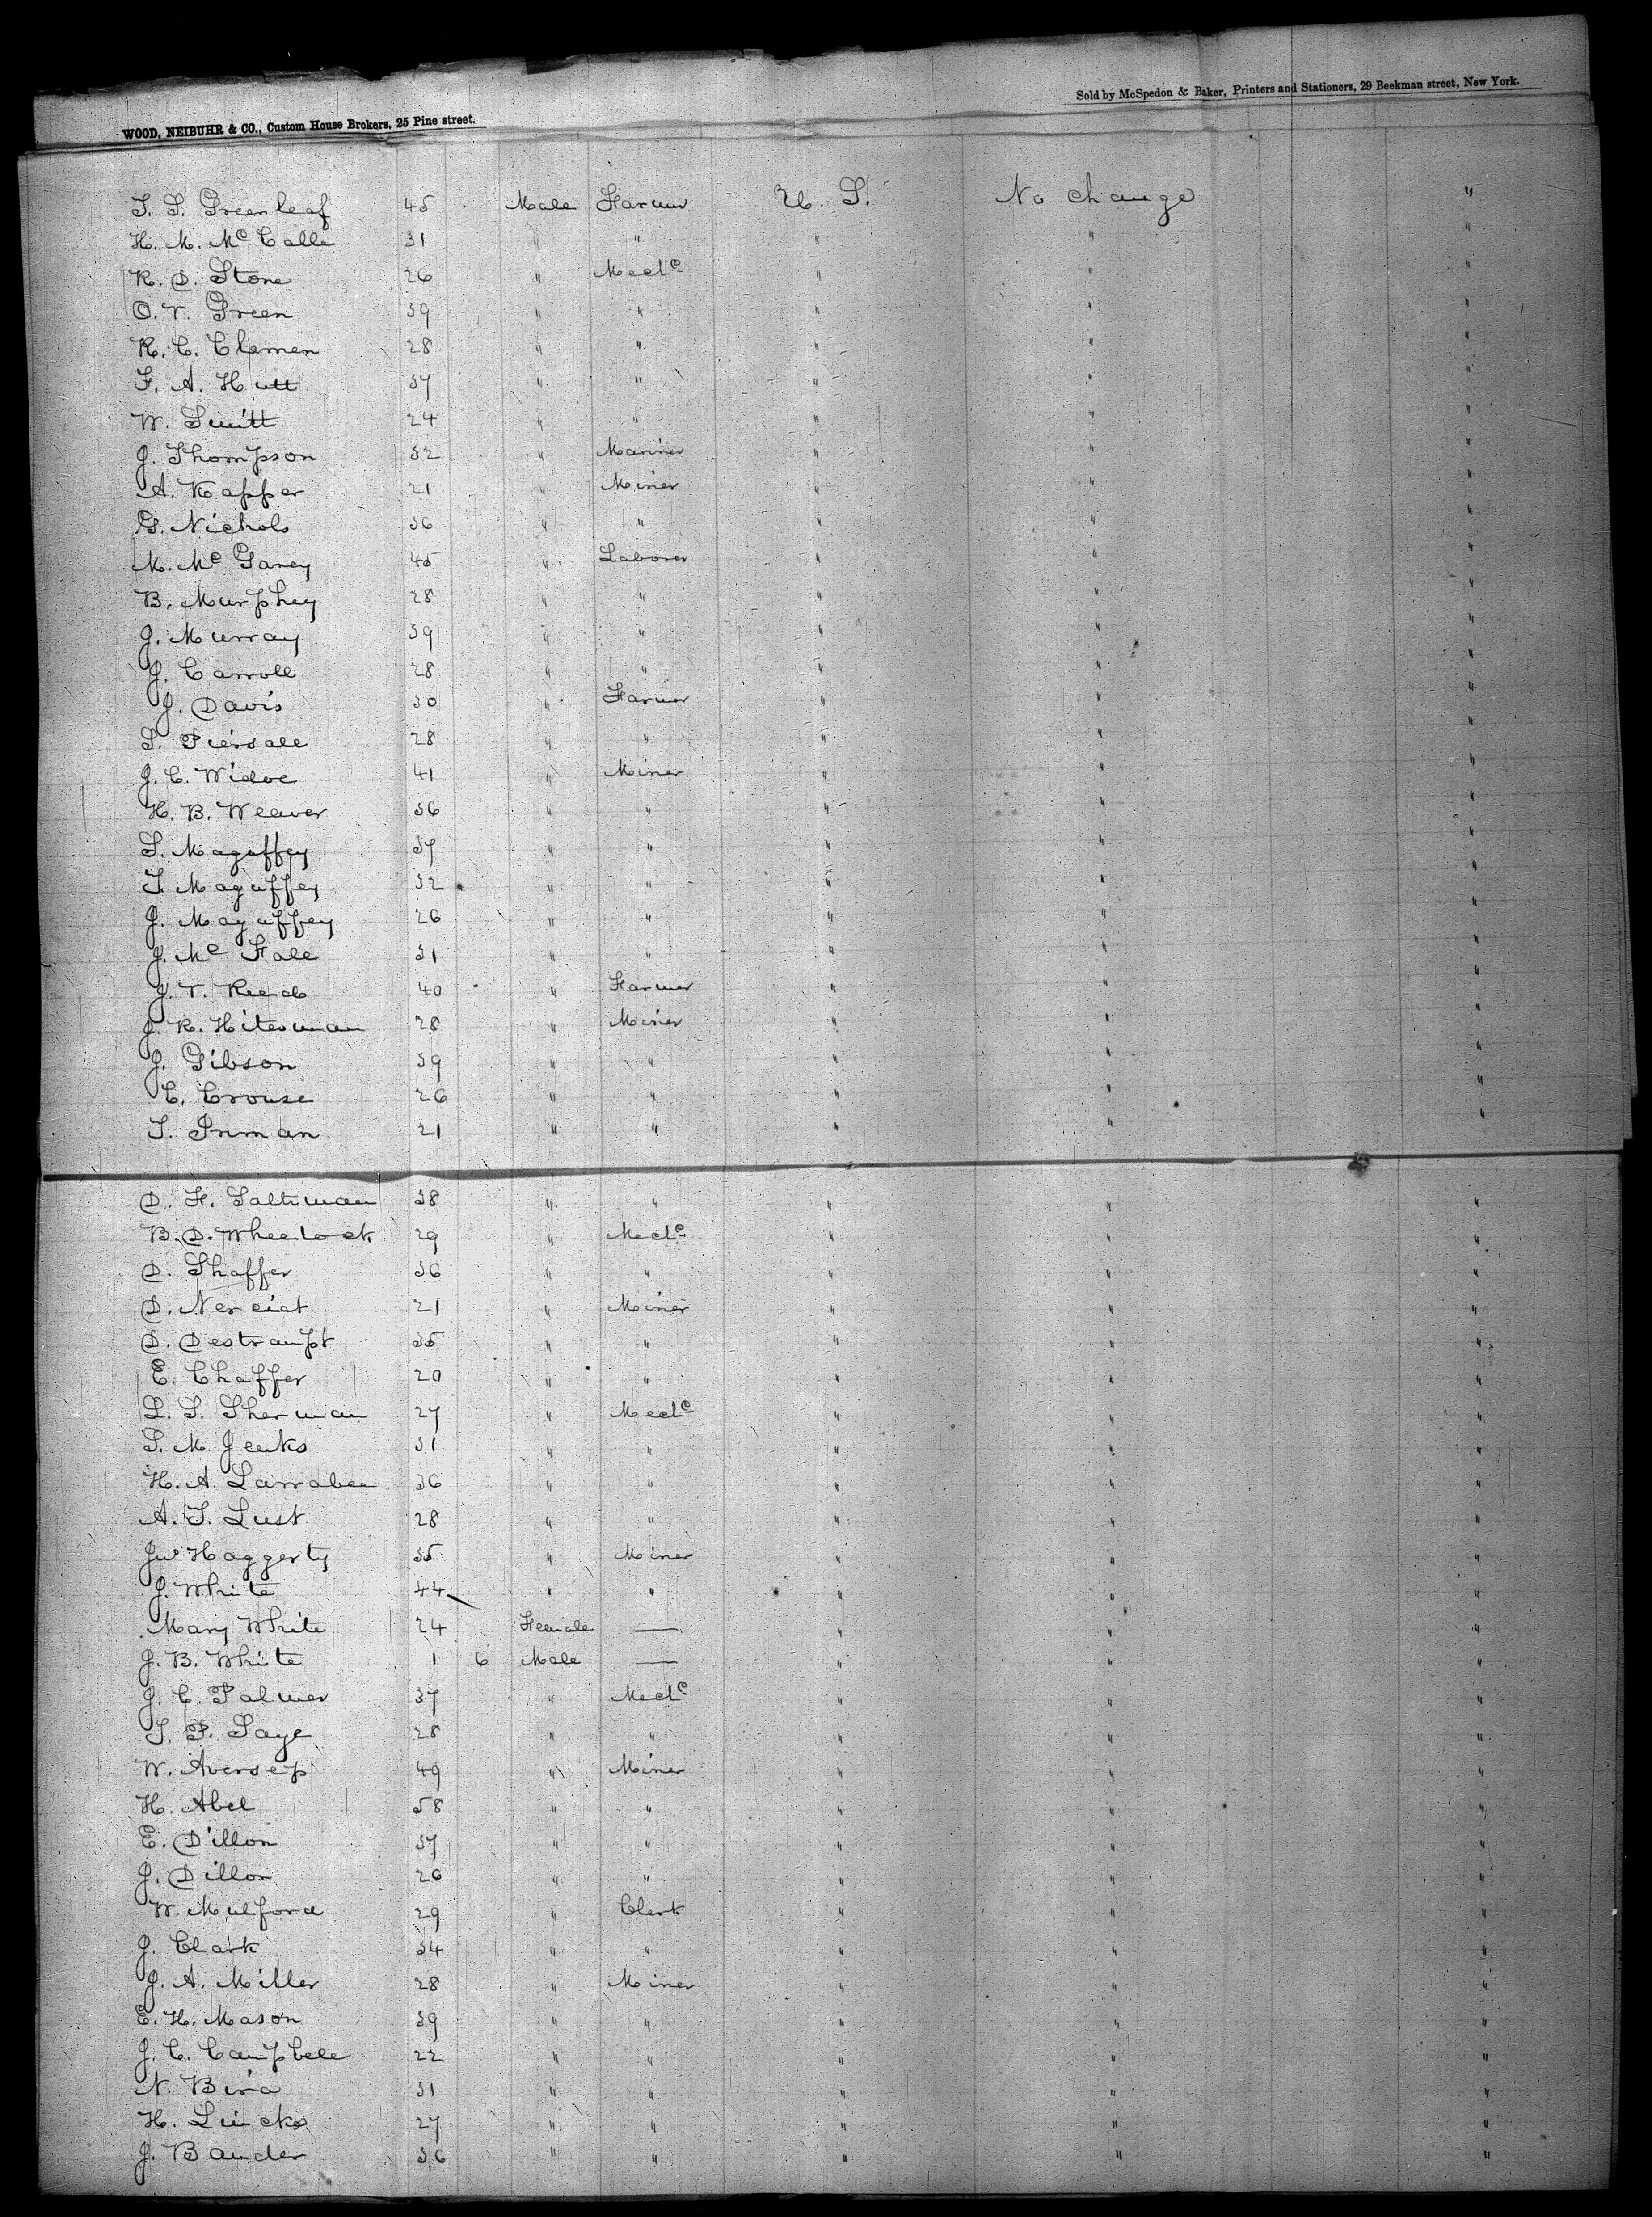 WOOD, NEIBUHR & CO., Custom House Brokers, 25 Pine street.
Sold by McSpedon & Baker, Printers and Stationers, 29 Beekman street, New York.
S. S. Greenleaf 45 Male Farmer U. S. No change "
H. M. McCalle 31 " " " " "
R. D. Stone 26 " Mechc " " "
O. V. Green 39 " " " " "
R. C. Clemen 28 " " " " "
F. A. Hutt 37 " " " " "
W. Smitt 24 " " " " "
J. Thompson 32 " Mariner " " "
A. Kapper 21 " Miner " " "
G. Nichols 36 " " " " "
M. Mc Garey 45 " Laborer " " "
B. Murphey 28 " " " " "
J. Murray 39 " " " " "
J. Carroll 28 " " " " "
J. Davis 30 " Farmer " " "
S. Piersall 28 " " " " "
J. C. Widoe 41 " Miner " " "
H. B. Weaver 36 " " " " "
S. Magaffey 37 " " " " "
T. Maguffey 32 " " " " "
J. Maguffey 26 " " " " "
J. Mc Fall 31 " " " " "
J. V. Reed 40 " Farmer " " "
J. R. Hitesman 28 " Miner " " "
J. Gibson 39 " " " " "
C. Crouse 26 " " " " "
T. Inman 21 " " " " "
D. F. Saltsman 38 " " " " "
B. D. Wheelock 29 " Mechc " " "
D. Shaffer 36 " " " " "
D. 21 " Miner " " "
D. Destrampt 35 " " " " "
E. Chaffer 20 " " " " "
L. S. Sherman 27 " Mechc " " "
S. M. Jenks 31 " " " " "
H. A. Larrabee 36 " " " " "
A. T. Lust 28 " " " " "
Jno Haggerty 35 " Miner " " "
J. White 44 " " " " "
Mary White 24 Female — " " "
J. B. White 1 6 Male — " " "
J. C. Palmer 37 " Mechc " " "
T. P. Saye 28 " " " " "
W. 49 " Miner " " "
H. Abel 58 " " " " "
E. Dillon 37 " " " " "
J. Dillon 26 " " " " "
W. Mulford 29 " Clerk " " "
J. Clark 34 " " " " "
J. A. Miller 28 " Miner " " "
E. H. Mason 39 " " " " "
J. C. Campbell 22 " " " " "
N. Bird 31 " " " " "
H. Lucks 27 " " " " "
J. Bander 36 " " " " "